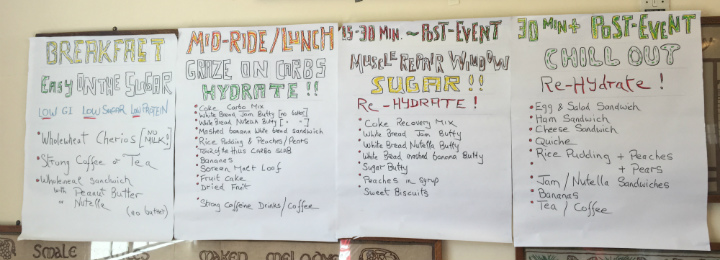 BREAKFAST
EASY ON THE SUGAR
LOW GI LOW SUGAR LOW PROTEIN
• Wholewheat Cherios [NO MILK!]
• Strong Coffee or Tea
• Wholemeal Sandwich
with Peanut Butter
" Nutella (no butter)
MID-RIDE/LUNCH
GRAZE ON CARBS
HYDRATE !!
• Coke Carbo Mix
• White Bread Jam Butty [no butter]
• White Bread Nutella Butty [" "]
• Mashed banana white bread sandwich
• Rice Pudding & Peaches/Pears
• TOUR OF THE HILLS CARBO SLAB
• Bananas
• Soreen Malt Loaf
• Fruit Cake
• Dried Fruit
• Strong Caffeine Drinks/Coffee
15-30 MIN. ~ POST-EVENT
MUSCLE REPAIR WINDOW
SUGAR !!
RE-HYDRATE !
• Coke Recovery Mix
• White Bread Jam Butty
• White Bread Nutella Butty
• White Bread mashed banana Butty
• Sugar Butty
• Peaches in Syrup
• Sweet Biscuits
30 MIN+ POST-EVENT
CHILL OUT
Re-Hydrate !
• Egg & Salad Sandwich
• Ham Sandwich
• Cheese Sandwich
• Quiche
• Rice Pudding + Peaches
+ Pears
• Jam/Nutella Sandwiches
• Bananas
• Tea / Coffee
SMALE